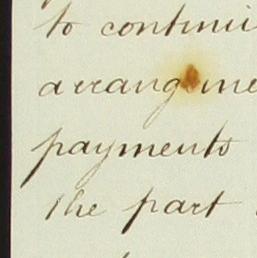 to continu
arrangeme
payments
the part